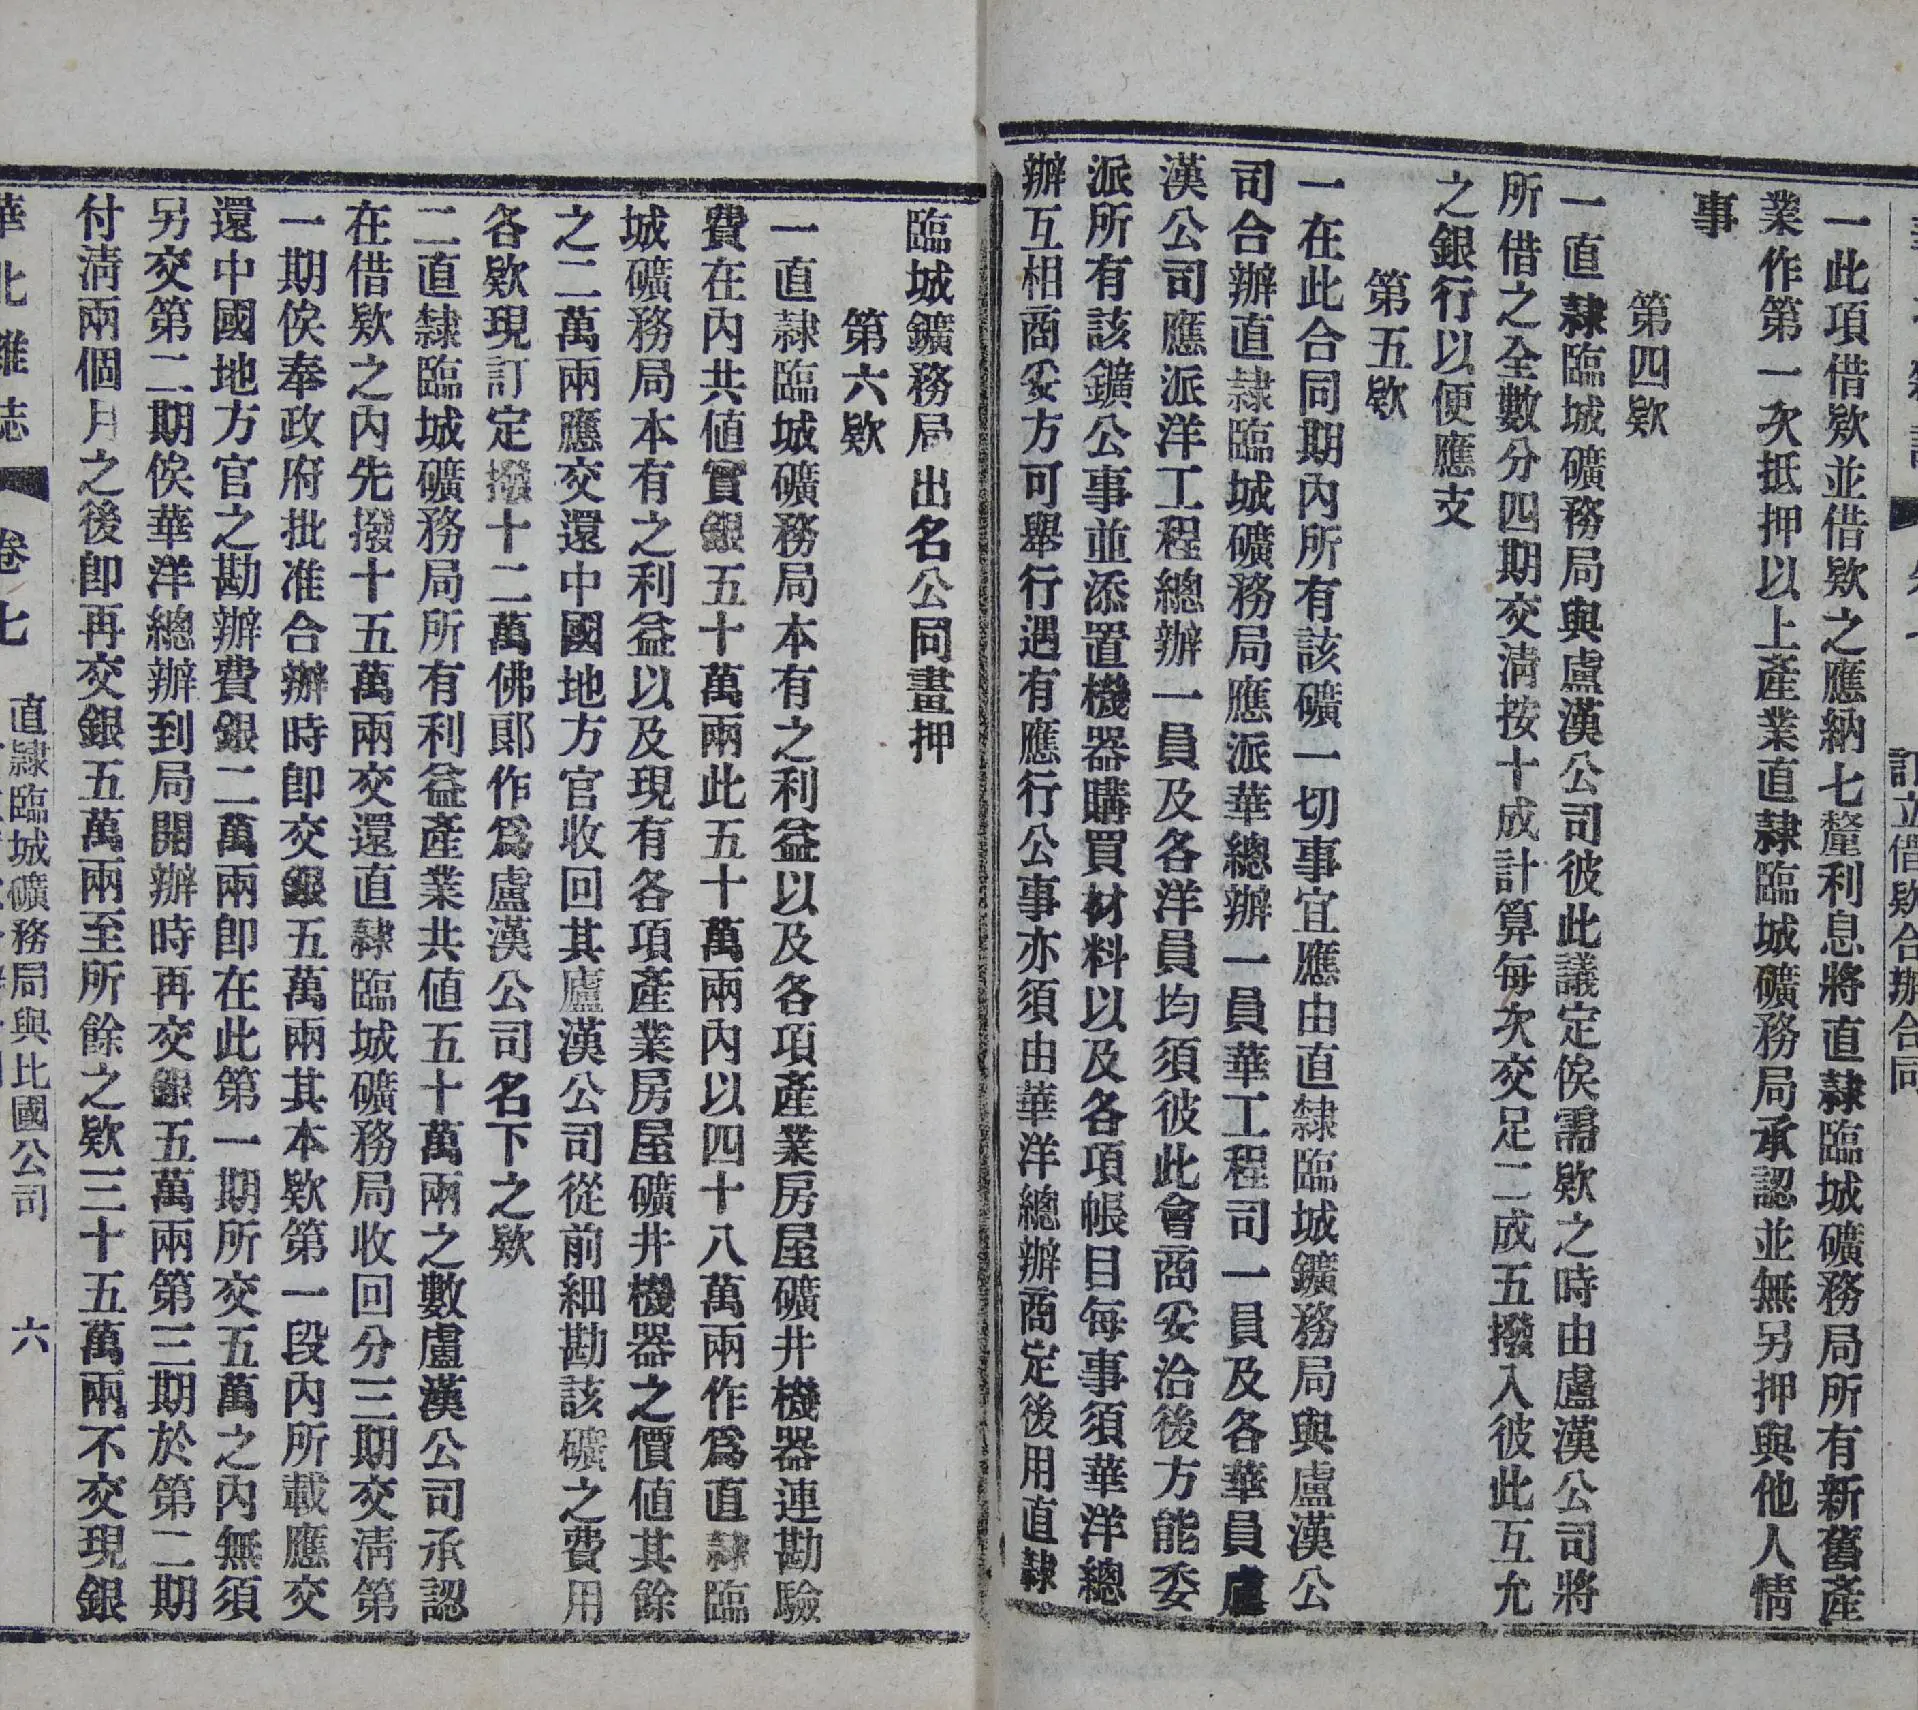 訂立借欵合辦合同
一此項借欵並借欵之應納七釐利息將直隸臨城礦務局所有新舊產
業作第一次抵押以上產業直隸臨城礦務局承認並無另押與他人情
事
第四欵
一直隸臨城礦務局與盧漢公司彼此議定俟需欵之時由盧漢公司將
所借之全數分四期交淸按十成計算每次交足二成五撥入彼此互允
之銀行以便應支
第五欵
一在此合同期內所有該礦一切事宜應由直隸臨城鑛務局與盧漢公
司合辦直隸臨城礦務局應派華總辦一員華工程司一員及各華員盧
漢公司應派洋工程總辦一員及各洋員均須彼此會商妥洽後方能委
派所有該鑛公事並添置機器購買材料以及各項帳目每事須華洋總
辦互相商妥方可舉行遇有應行公事亦須由華洋總辦商定後用直隸
臨城鑛務局出名公同畫押
第六欵
一直隸臨城礦務局本有之利益以及各項產業房屋礦井機器連勘驗
費在內共值實銀五十萬兩此五十萬兩內以四十八萬兩作爲直隸臨
城礦務局本有之利益以及現有各項產業房屋礦井機器之價値其餘
之二萬兩應交還中國地方官收回其廬漢公司從前細勘該礦之費用
各欵現訂定撥十二萬佛郞作爲盧漢公司名下之欵
二直隸臨城礦務局所有利益產業共値五十萬兩之數盧漢公司承認
在借欵之內先撥十五萬兩交還直隸臨城礦務局收回分三期交淸第
一期俟奉政府批准合辦時卽交銀五萬兩其本欵第一段內所載應交
還中國地方官之勘辦費銀二萬兩卽在此第一期所交五萬之內無須
另交第二期俟華洋總辦到局開辦時再交銀五萬兩第三期於第二期
付淸兩個月之後卽再交銀五萬兩至所餘之欵三十五萬兩不交現銀
華北雜誌 卷七 直隸臨城礦務局與比國公司 六